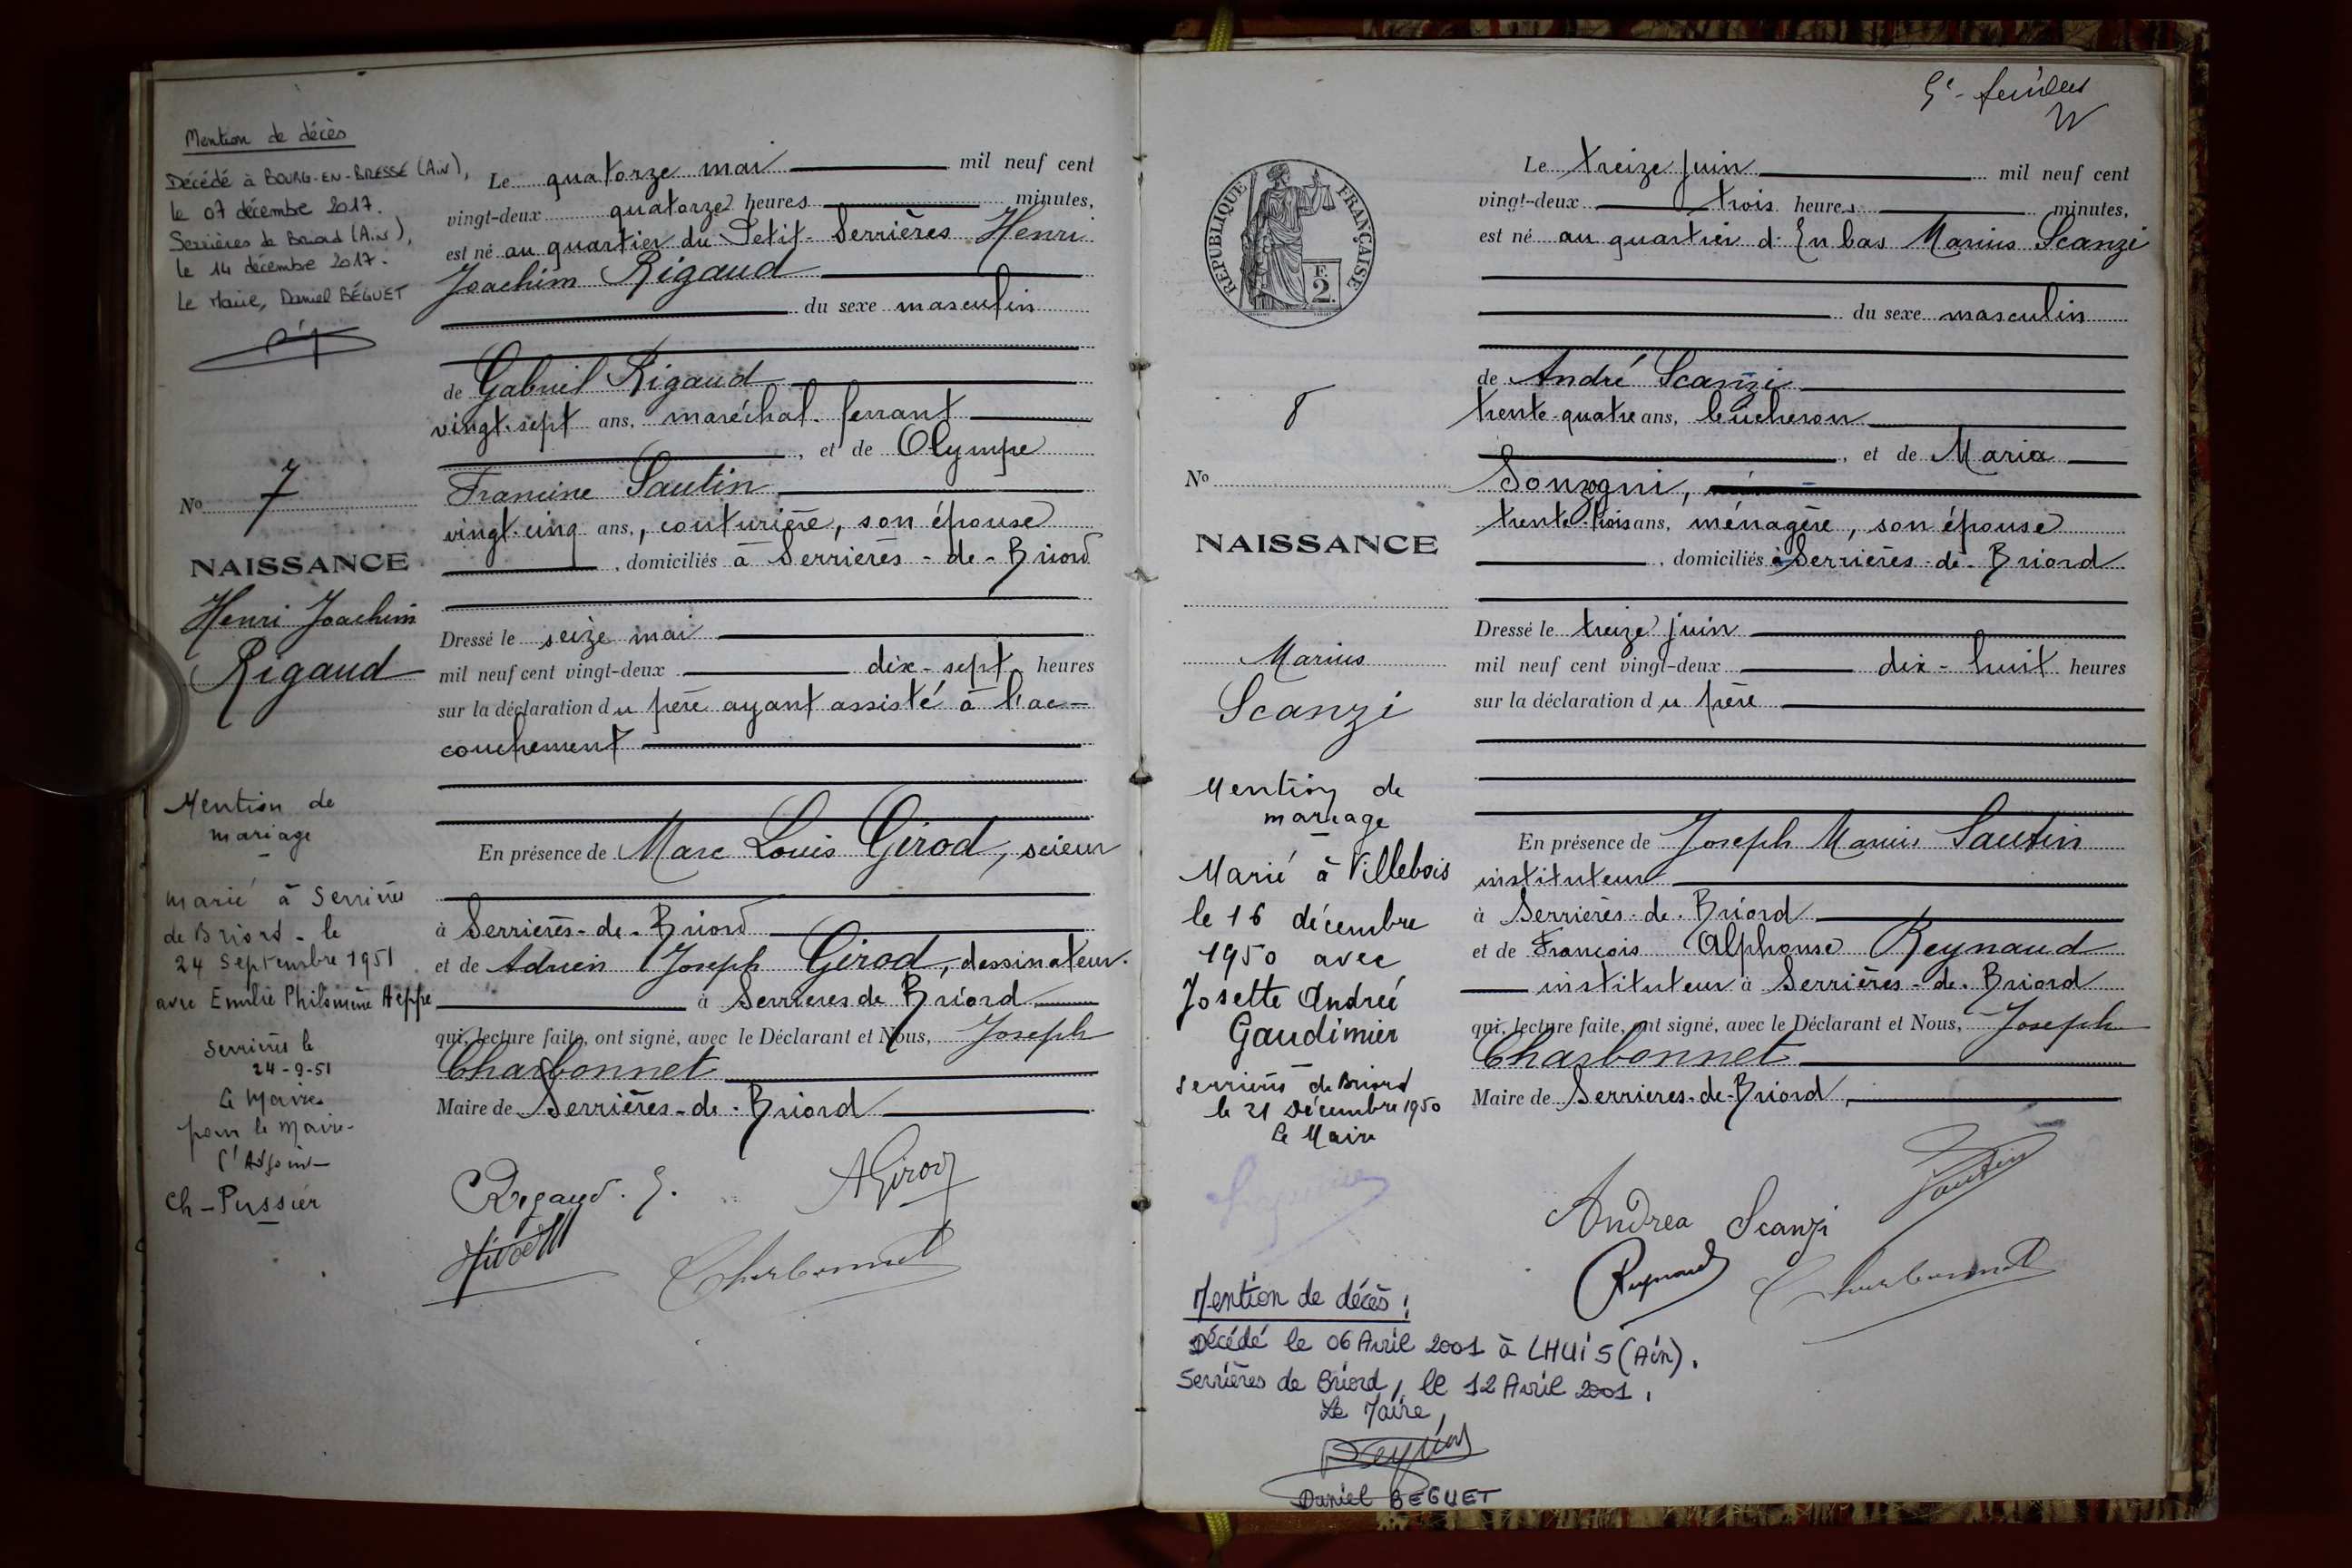 Mention de décès
Décédé à BOURG-EN-BRESSE (Ain),
le 07 décembre 2017.
Serrières de Briord (Ain),
le 14 décembre 2017.
Le Maire, Daniel BÉGUET
No 7
NAISSANCE
Henri Joachim
Rigaud
Mention de
mariage
Marié à Serrières
de Briord - le
24 Septembre 1951
avec Emilie Philomène Aeppe
Serrières le
24-9-51
Le Maire
pour le Maire-
l'Adjoint
Ch-Pussier
Le quatorze mai mil neuf cent
vingt-deux quatorze heures minutes,
est né au quartier du Petit-Serrières Henri
Joachim Rigaud
du sexe masculin
de Gabriel Rigaud
vingt-sept ans, maréchal-ferrant
, et de Olympe
Francine Sautin
vingt-cinq ans, couturière, son épouse
, domiciliés à Serrières-de-Briord
Dressé le seize mai
mil neuf cent vingt-deux dix-sept heures
sur la déclaration du père ayant assisté à l'ac-
couchement
En présence de Marc Louis Girod, scieur
à Serrières-de-Briord
et de Adrien Joseph Girod, dessinateur.
à Serrières de Briord
qui, lecture faite, ont signé, avec le Déclarant et Nous, Joseph
Charbonnet
Maire de Serrières-de-Briord
Rigaud. G. AGirod
Charbonnet
RÉPUBLIQUE FRANÇAISE
F.
2.
8
No
NAISSANCE
Marius
Scanzi
Mention de
mariage
Marié à Villebois
le 16 décembre
1950 avec
Josette Andreé
Gaudimier
Serrières de Briord
le 21 Décembre 1950
Le Maire
Le treize juin mil neuf cent
vingt-deux trois heures minutes,
est né au quartier d'En bas Marius Scanzi
du sexe masculin
de André Scanzi
trente-quatre ans, bûcheron
, et de Maria
Sonzogni,
trente trois ans, ménagère, son épouse
, domiciliés à Serrières-de-Briord
Dressé le treize juin
mil neuf cent vingt-deux dix-huit heures
sur la déclaration du père
En présence de Joseph Marius Sautin
instituteur
à Serrières-de-Briord
et de François Alphonse Reynaud
instituteur à Serrières-de-Briord
qui, lecture faite, ont signé, avec le Déclarant et Nous, Joseph
Charbonnet
Maire de Serrières-de-Briord,
Andrea Scanzi Sautin
Reynaud Charbonnet
Mention de décès:
Décédé le 06 Avril 2001 à LHUIS (Ain).
Serrières de Briord, le 12 Avril 2001.
Le Maire,
Daniel BEGUET